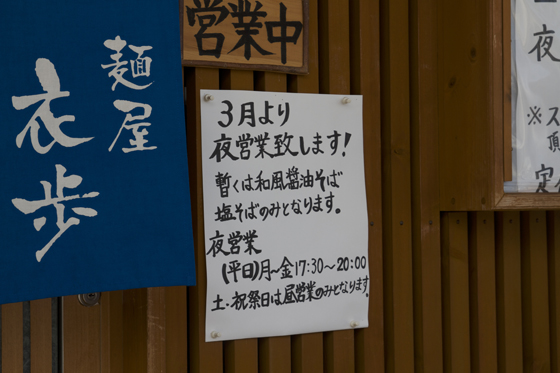 営業中
麺屋
衣歩
3月より
夜営業致します!
暫くは和風醤油そば
塩そばのみとなります。
夜営業
(平日)月〜金17:30〜20:00
土・祝祭日は昼営業のみとなります。
夜
※ス
頂
定